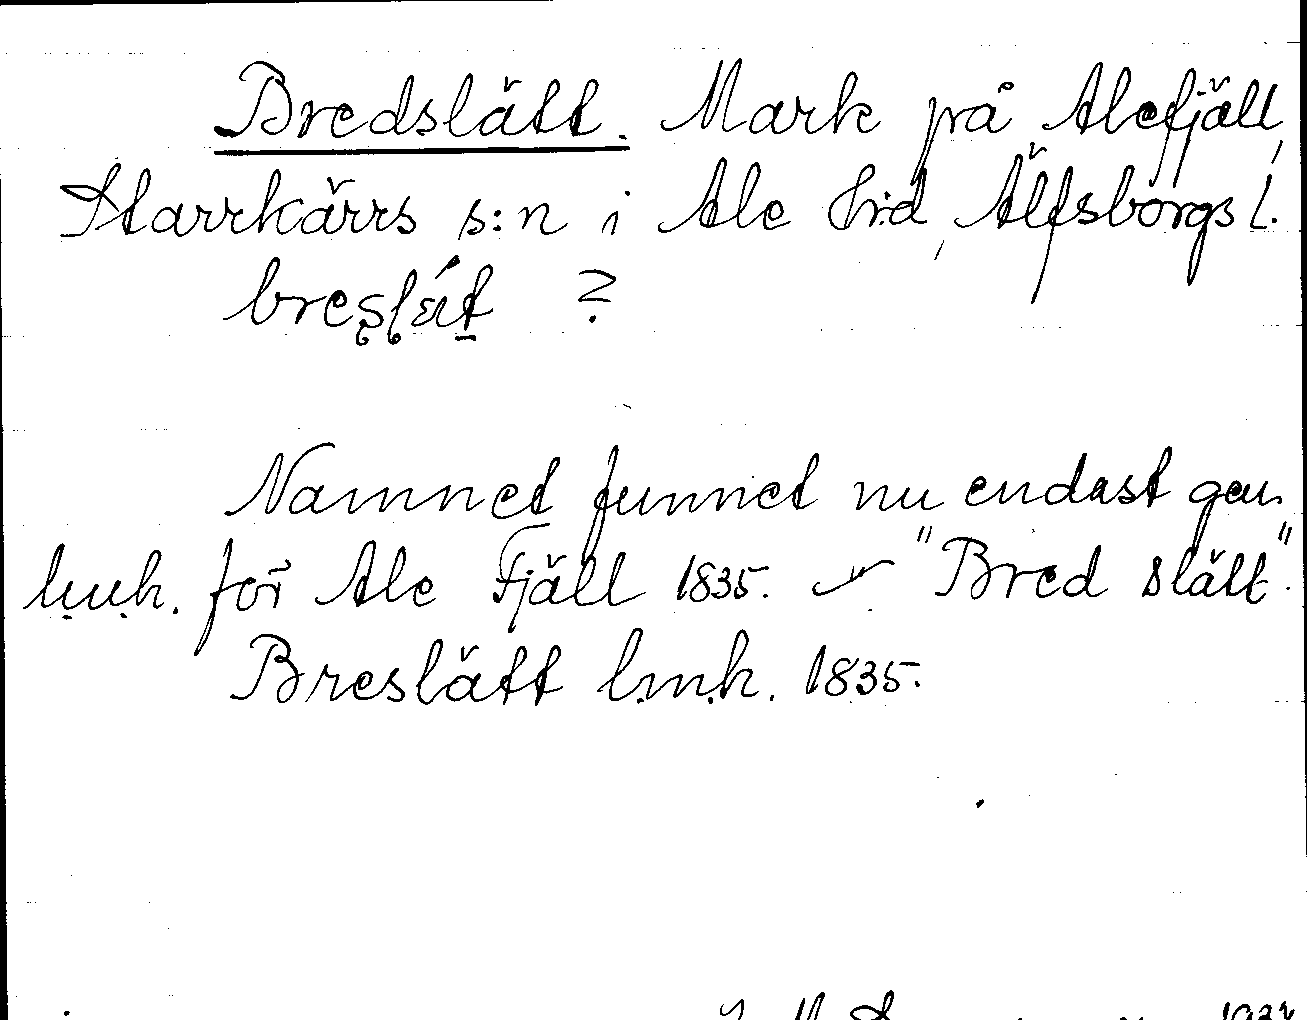 Bredslätt. Mark på Alefjäll,
Starrkärrs s:n i Ale h:d, Älfsborgs l.
breslät ?
Namnet funnet nu endast gen.
l.m.h. för Ale Fjäll 1835. "Bred slätt".
Breslätt l.m.h. 1835.